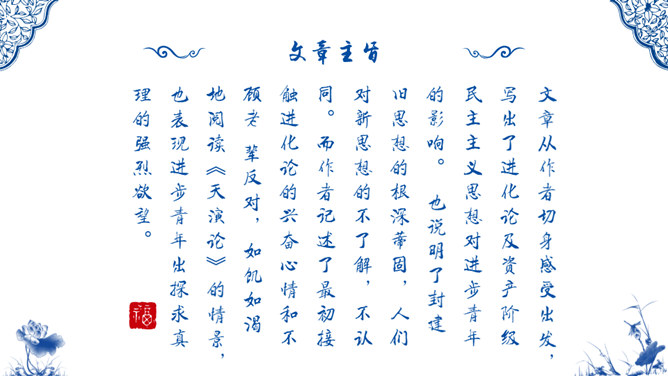 文章主旨
文章从作者切身感受出发，
写出了进化论及资产阶级
民主主义思想对进步青年
的影响。也说明了封建
旧思想的根深蒂固，人们
对新思想的不了解，不认
同。而作者记述了最初接
触进化论的兴奋心情和不
顾老辈反对，如饥如渴
地阅读《天演论》的情景，
也表现进步青年出探求真
理的强烈欲望。
福